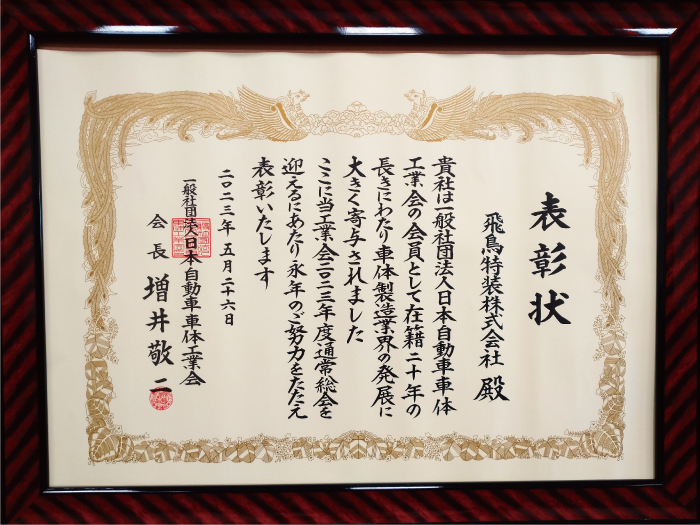 表彰状
飛鳥特装株式会社 殿
貴社は一般社団法人日本自動車車体
工業会の会員として在籍二十年の
長きにわたり車体製造業界の発展に
大きく寄与されました
ここに当工業会二〇二三年度通常総会を
迎えるにあたり永年のご努力をたたえ
表彰いたします
二〇二三年 五月 二十六日
一般社団法人日本自動車車体工業会
会長 増井敬二